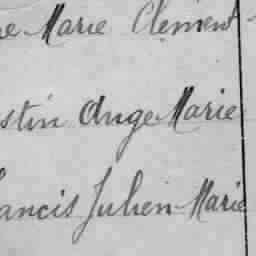 ne Marie Clément
stin Ange Marie
ancis Julien Marie